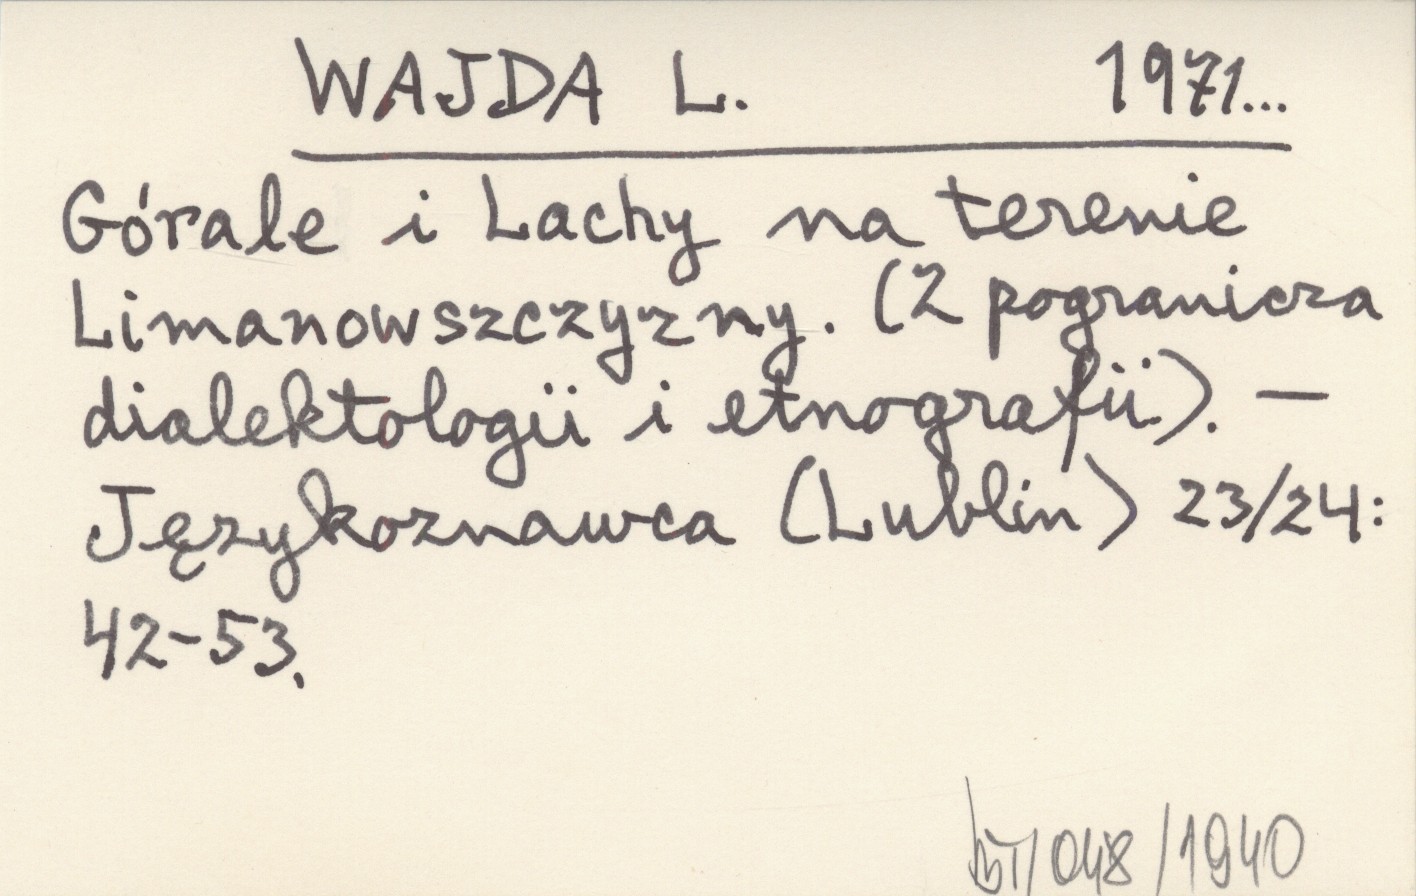 WAJDA L. 1971...
Górale i Lachy na terenie
Limanowszczyzny. (Z pogranicza
dialektologii i etnografii). —
Językoznawca (Lublin) 23/24:
42-53.
/048/1940